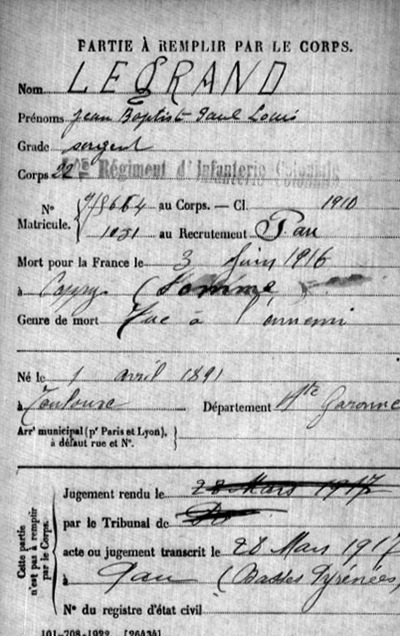 PARTIE À REMPLIR PAR LE CORPS.
Nom LEGRAND
Prénoms Jean Baptiste Paul Louis
Grade sergent
Corps 22e Régiment d'Infanterie Coloniale
N° 9/8664 au Corps. — Cl. 1910
Matricule. 1031 au Recrutement Pau
Mort pour la France le 3 Juin 1916
à Cappy (Somme)
Genre de mort Tué à l'ennemi
Né le 1 avril 1891
à Toulouse Département Hte Garonne
Arrt municipal (pr Paris et Lyon),
à défaut rue et N°.
Cette partie
n'est pas à remplir
par le Corps.
Jugement rendu le 28 Mars 1917
par le Tribunal de
acte ou jugement transcrit le 28 Mars 1917
à Pau (Basses Pyrénées)
N° du registre d'état civil
101-708-1922. [26434]